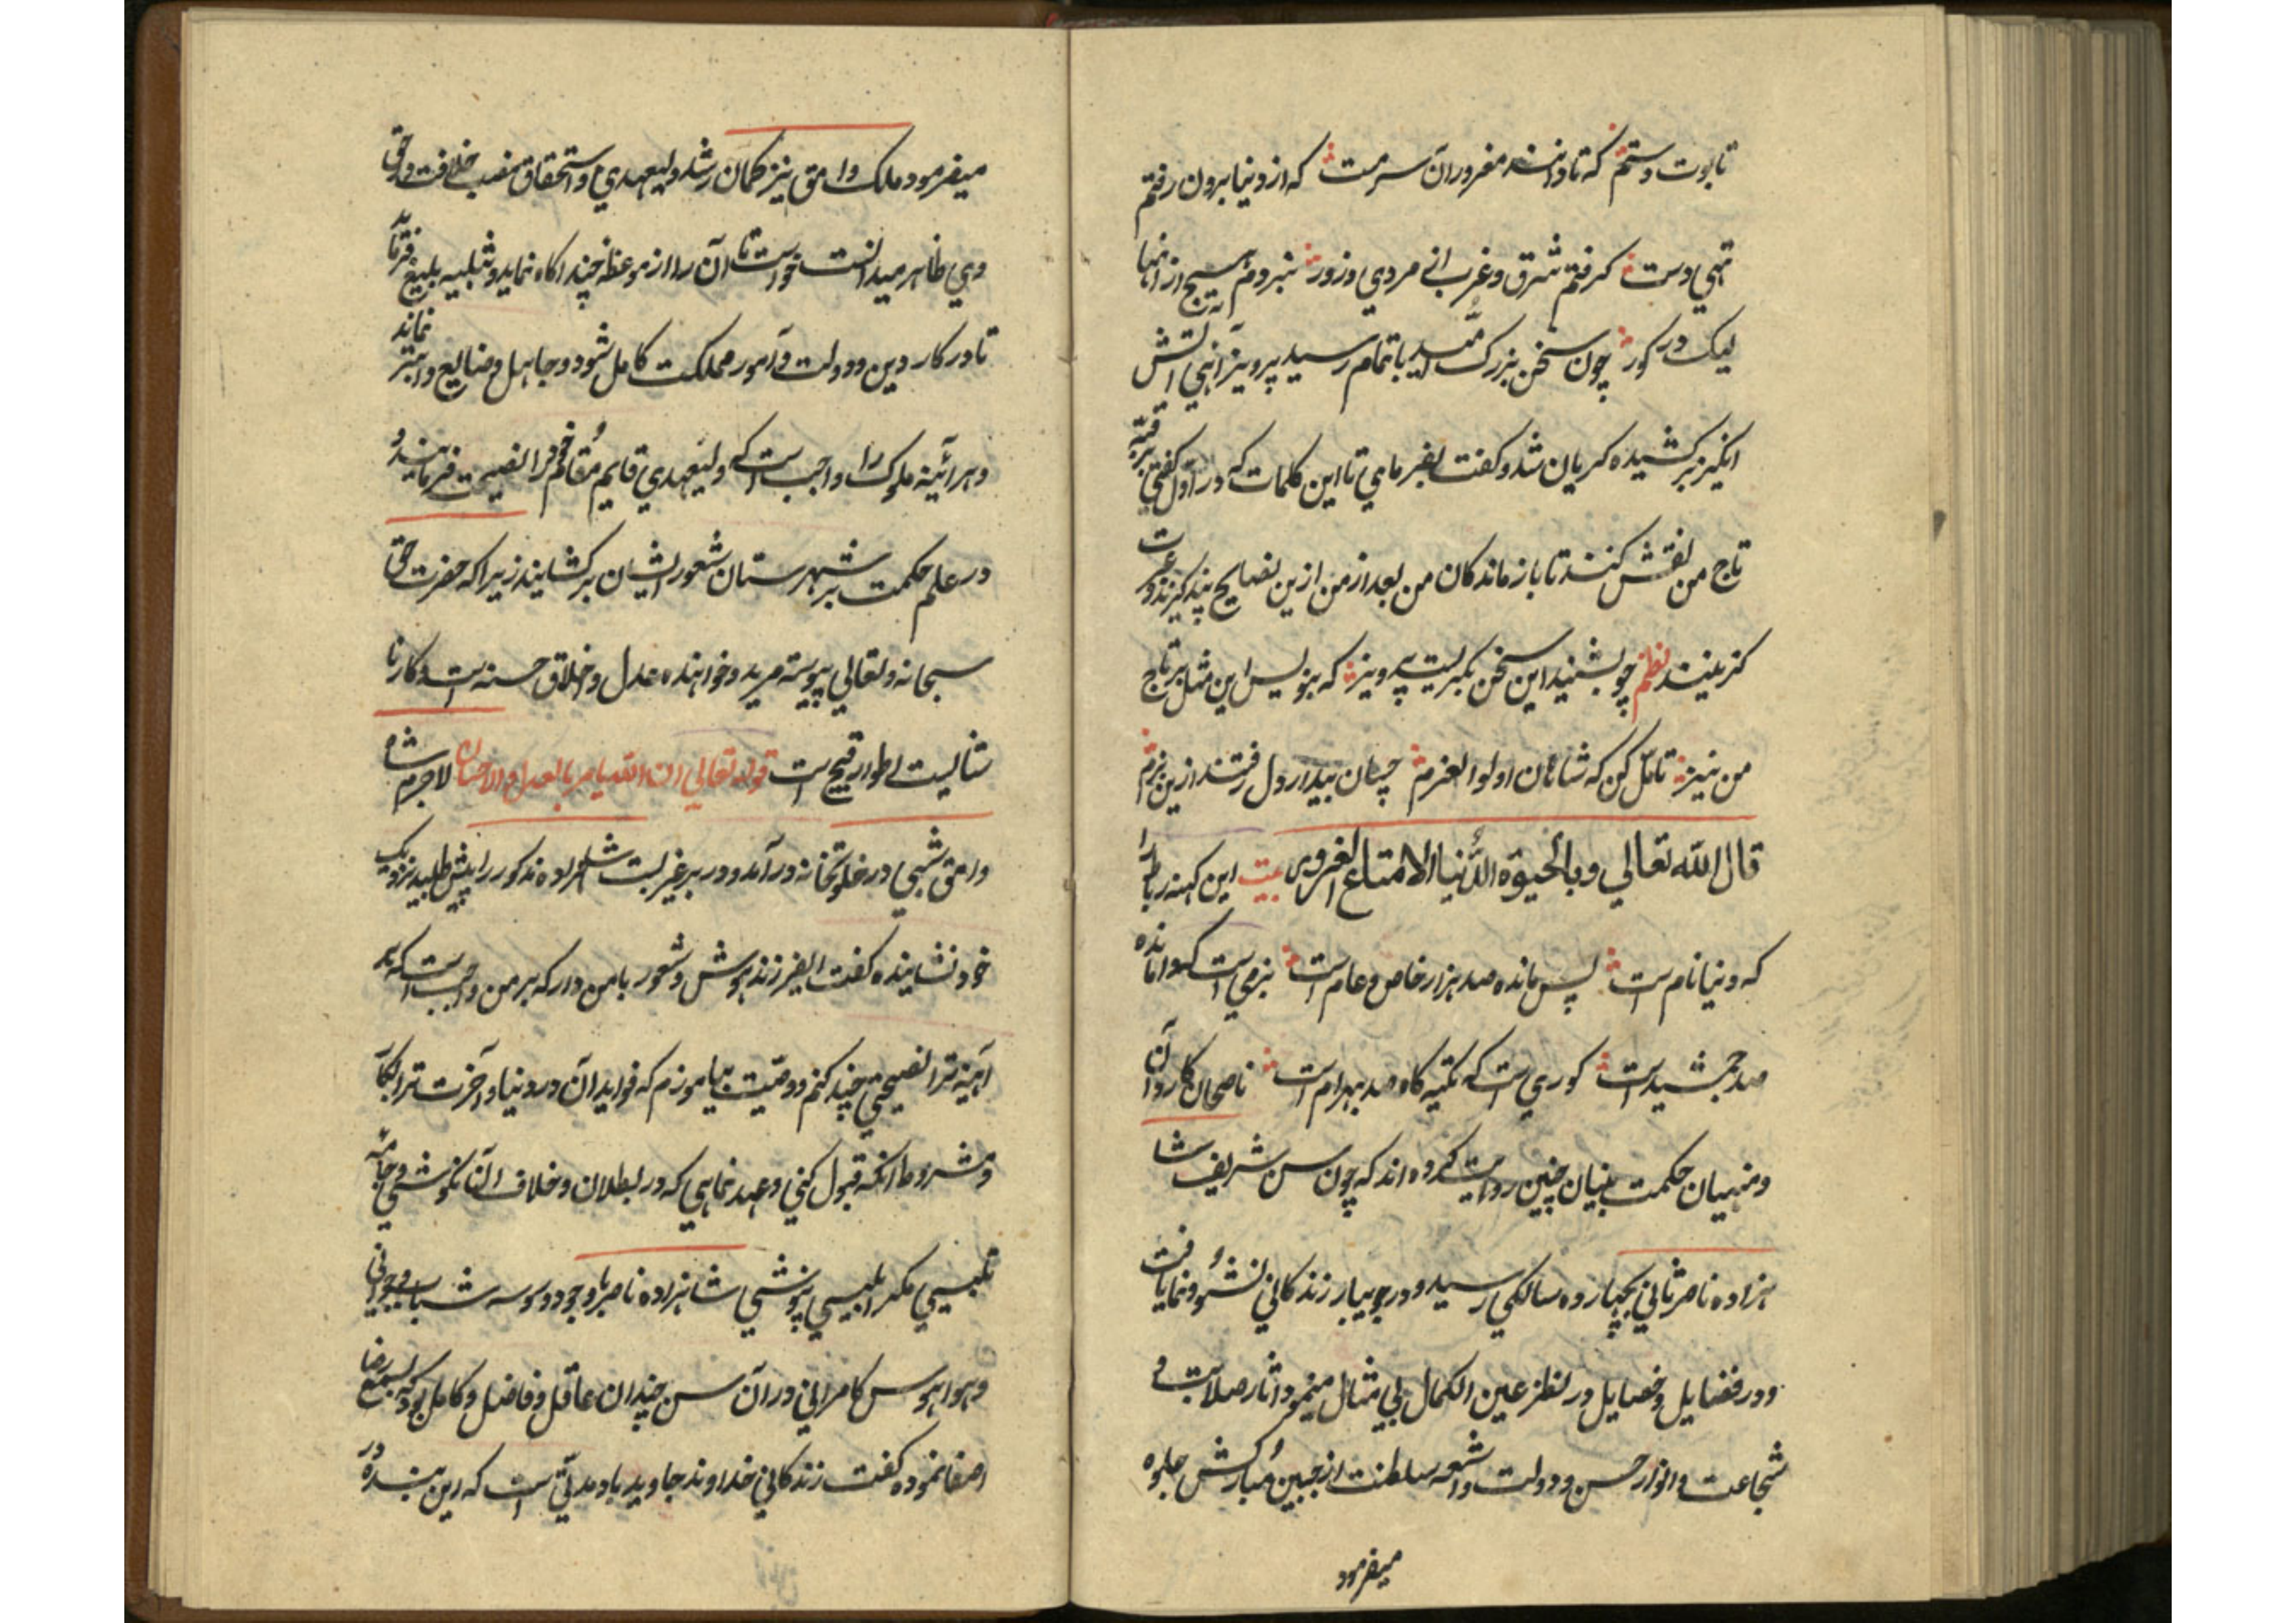 تابوت دستم که تا دانند مغروران سرمست که از دنیا برون رفتم
تهی دست کرفتم شرق و غرب انی مردی و زور نبردم هیچ از انها
لیک در کور چون سخن بزرک امید باتمام رسید پرویز آهی آتش
انکیز برکشیده کریان شد و کفت بفرمای تا این کلمات که در اول کفتی بر قبه
تاج من نقش کنند تا بازماندکان من بعد از من ازین نصایح پند کیرند و عبرت
کزینند نظم چو بشنید این سخن بکریست پرویز که بنویس این مثل بر تاج
من نیز تامّل کن که شاهان اولوا العزم چسان بیدار دل رفتند ازین بزم
قال الله تعالی و بالحیوة الدُنیا الا متاع الغرور بیت این کهنه رباط را
که دنیا نام است پس مانده صد هزار خاص و عام است بزمی است که وامانده
صد جمشید است کوری است که تکیه کاه صد بهرام است ناصحان کاردان
و منهیان حکمت بنیان چنین روایت کرده اند که چون سن شریف شا
هزاده ناصر ثانی بچهارده سالکی رسید و در جویبار زندکانی نشو و نما یافت
و در فضایل و خصایل در نظر عین الکمال بی مثال مینمود و آثار صلابت و
شجاعت و انوار حسن و دولت و اشعه سلطنت از جبین مُبارکش جلوه
میفرمود
میفرمود ملک وامق نیز کمان رشد ولیعهدی و استحقاق منصب خلافت در حق
وی ظاهر میدانست خواست تا آن را از موعظه چند اکاه نماید و تنبیه بلیغ فرماید
تا در کار دین و دولت و آمور مملکت کامل شود و جاهل و ضایع و ابتر نماند
و هر آئینه ملوک را واجب است که ولیعهدی قایم مُقام خود را نصیحت فرمایند و
در علم حکمت بر شهرستان شعور ایشان برکشایند زیرا که حضرت حق
سبحانه و تعالی پیوسته مرید و خواهنده عدل و اخلاق حسنه است و کار نا
شایست اطوار قبیح است قوله تعالی ان الله یامر بالعدل و الاحسان لاجرم شاه
وامق شبی در خلوتخانه در آمد و در بر غیر بست شاهزاده مذکور را پیش طلبید نزدیک
خود نشاینده کفت ایفرزند هوش و شعور با من دار که بر من واجب است که هر
آینه ترا نصیحتی چند کنم و وصّیت بیاموزم که فواید آن در دنیا و آخرت ترا بکار آ
و مشروط انکه قبول کنی و عهد نمایی که در بطلان و خلاف آن نکوشی و جامه
تلبیسی مکر ابلیسی نپوشی شاهزاده ناصر با وجود وسوسه شباب و جوانی
و هوا هوس کامرانی در آن سن چندان عاقل و فاضل و کامل بود که بسمع رضا
اصفا نموده کفت زندکانی خداوند جاوید باد مدتی است که این بنده در